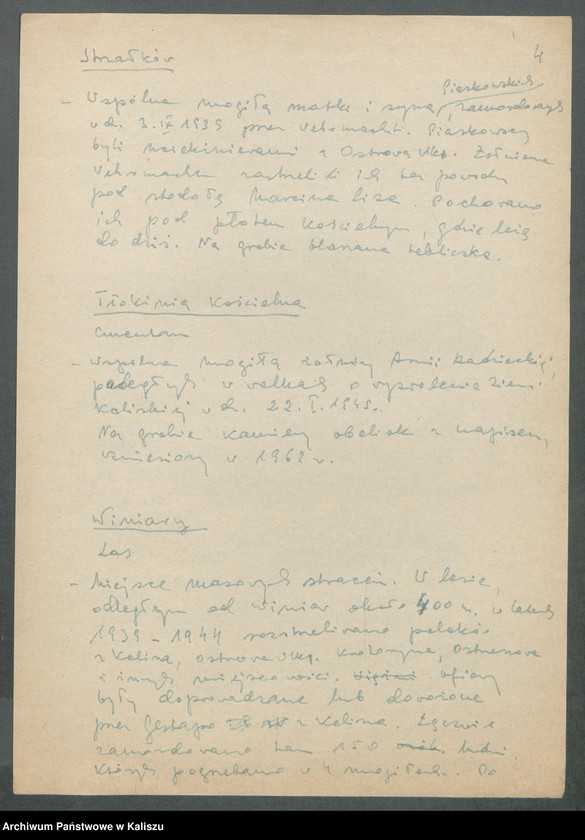 4
Strzałków
Piaskowskich
- Wspólna mogiła matki i syna, zamordowanych
w d. 3.IX 1939 przez Wehrmacht. Piaskowscy
byli uciekinierami z Ostrowa Wlkp. Żołnierze
Wehrmachtu rozstrzelali ich bez powodu
pod stodołą Marcina Lisa. Pochowano
ich pod płotem kościelnym, gdzie leżą
do dziś. Na grobie blaszana tabliczka.
Tłokinia Kościelna
Cmentarz
- Wspólna mogiła żołnierzy Armii Radzieckiej,
poległych w walkach o wyzwolenie Ziemi
Kaliskiej w d. 22.I.1945.
Na grobie kamienny obelisk z napisem,
wzniesiony w 1962 r.
Winiary
Las
- Miejsce masowych straceń. W lesie,
odległym od Winiar około 400 m. w latach
1939 - 1944 rozstrzeliwano polaków
z Kalisza, Ostrowa Wlkp. Krotoszyna, Ostrzeszowa
i innych miejscowości. ofiary
były doprowadzane lub dowożone
przez Gestapo z Kalisza. Łącznie
zamordowano tam 150 osób. ludzi
których pogrzebano w 4 mogiłach. Do
Archiwum Państwowe w Kaliszu